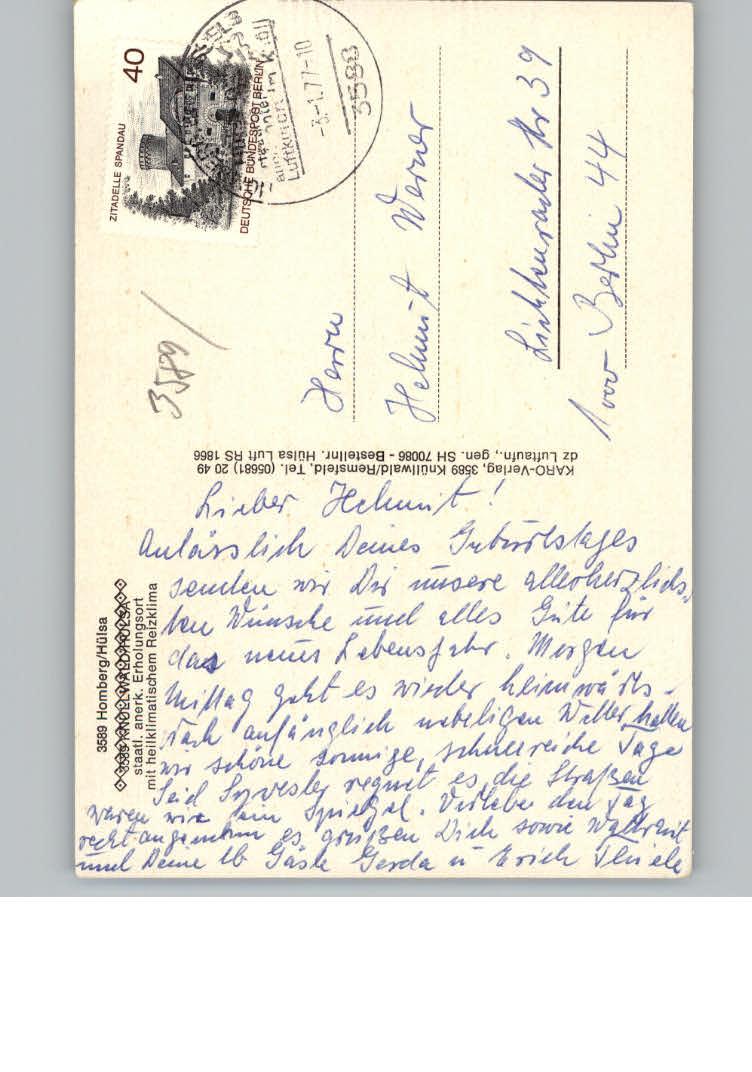 ZITADELLE SPANDAU
40
DEUTSCHE BUNDESPOST BERLIN
Luftkurort
-3.-1.77-10
3588
3589
Herrn
Helmut Werner
Lichtenrader Str 39
1000 Berlin 44
KARO-Verlag, 3589 Knüllwald/Remsfeld, Tel. (05681) 20 49
dz Luftaufn., gen. SH 70086 - Bestellnr. Hülsa Luft RS 1866
3589 Homberg/Hülsa
3589 KNÜLLWALD/HÜLSA
staatl. anerk. Erholungsort
mit heilklimatischem Reizklima
Lieber Helmut!
Anlässlich Deines Geburtstages
senden wir Dir unsere allerherzlichs-
ten Wünsche und alles Gute für
das neues Lebensjahr. Morgen
Mittag geht es wieder heimwärts.
Nach anfänglich nebeligen Wetter hatten
wir schöne sonnige, schneereiche Tage
Seid Sylvester regnet es, die Straßen
waren wie ein Spiegel. Verlebe den Tag
recht angenehm es grüßen Dich sowie Waltraut
und Deine lb Gäste Gerda u Erich Thiele